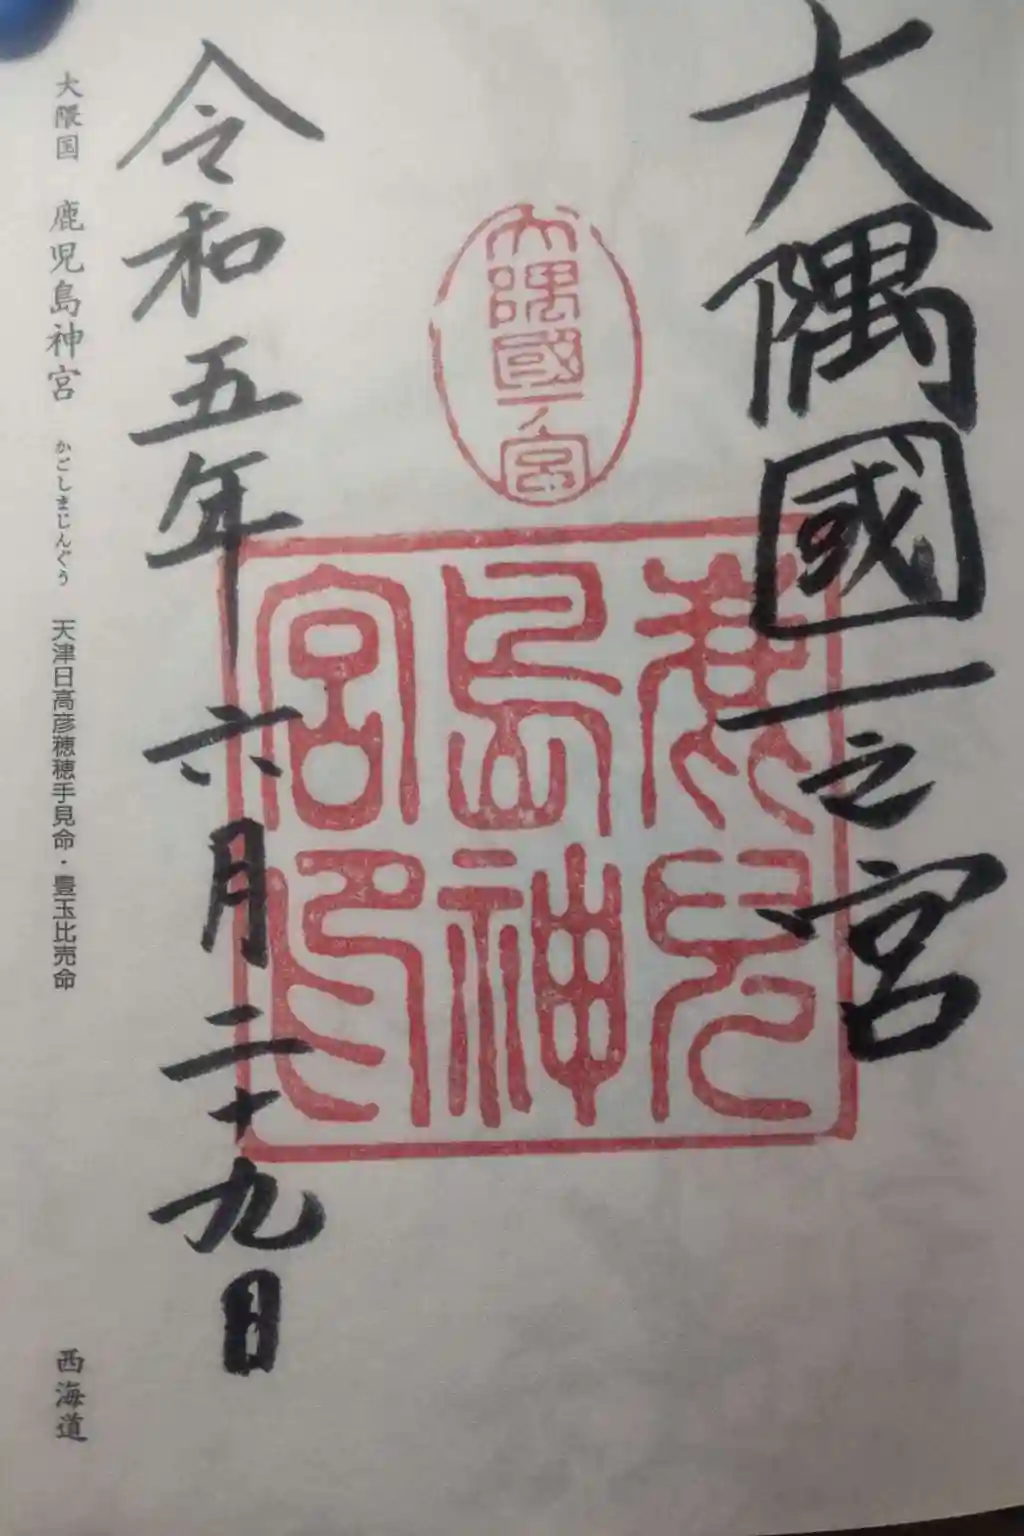 大隅國一之宮
大隅國一ノ宮
鹿兒
島神
宮印
令和五年六月二十九日
大隈国 鹿児島神宮 かごしまじんぐう 天津日高彦穂穂手見命・豊玉比売命 西海道